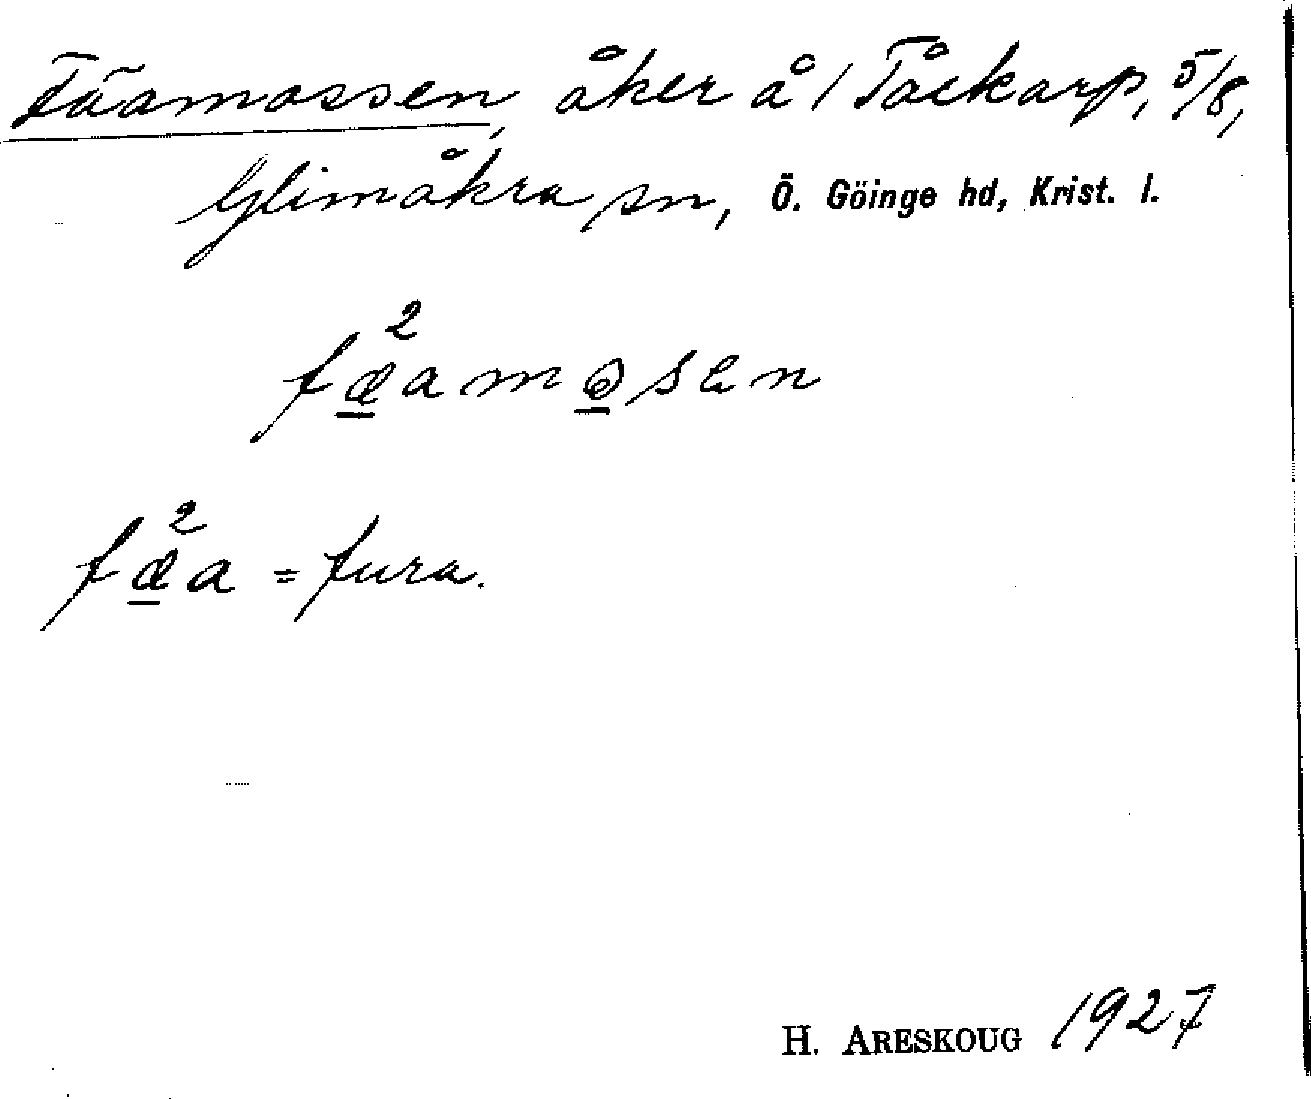 Fåamossen, åker å 1 Tåckarp, 5/8,
Glimåkra sn, Ö. Göinge hd, Krist. l.
fæ²amosen
fæ²a = fura.
H. ARESKOUG 1927